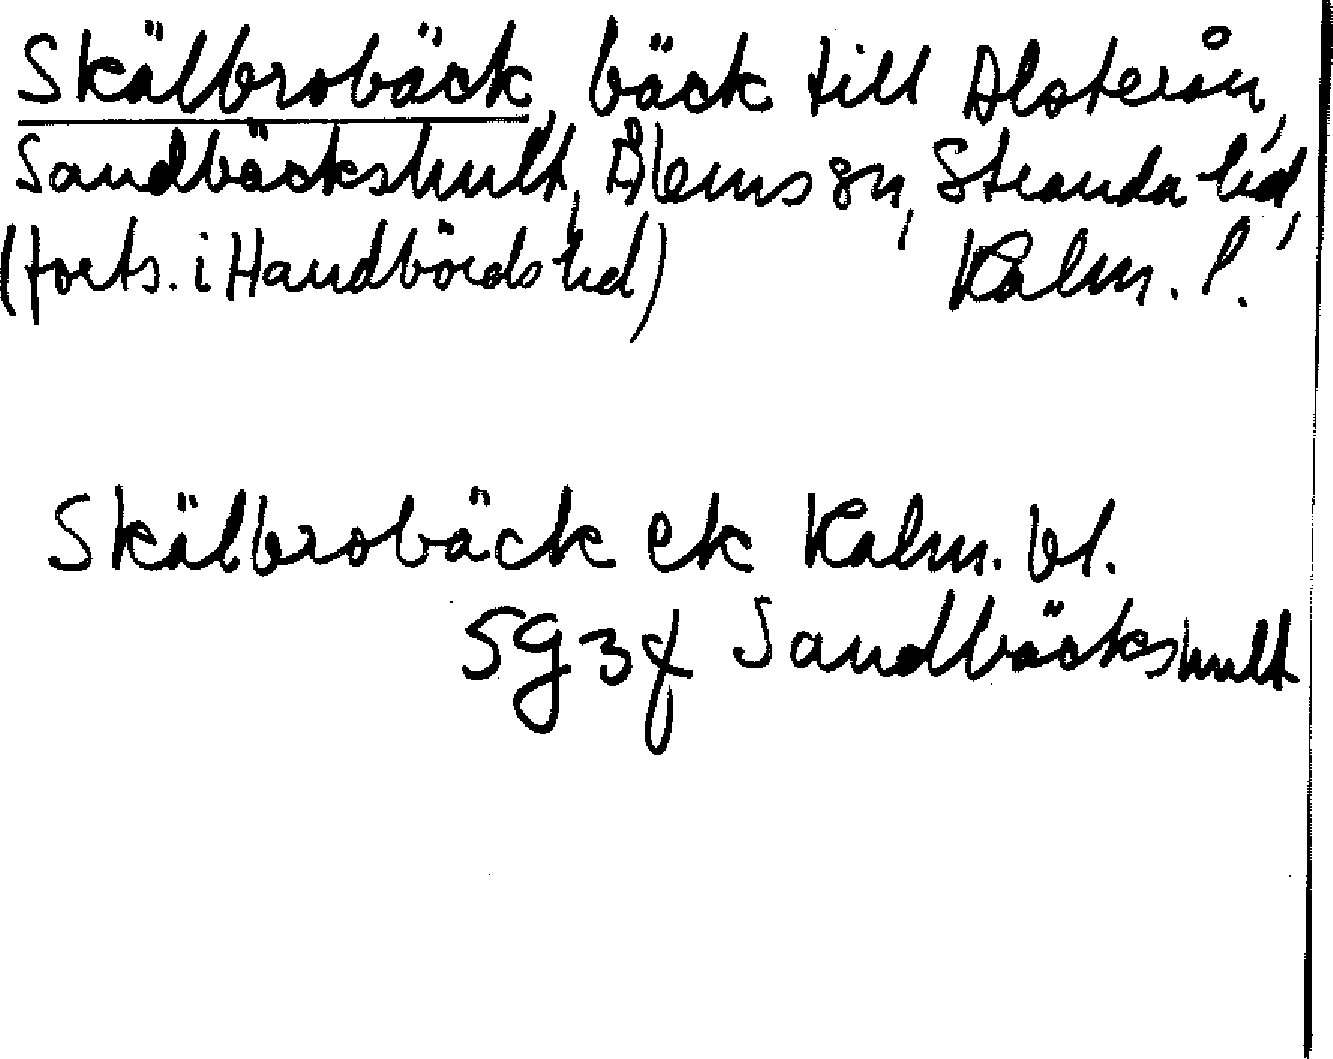 Skälbrobäck, bäck till Alsterån,
Sandbäckshult, Ålems sn, Stranda hd,
(forts. i Handbörds hd) Kalm. l.
Skälbrobäck ek Kalm. bl.
5G3f Sandbäckshult